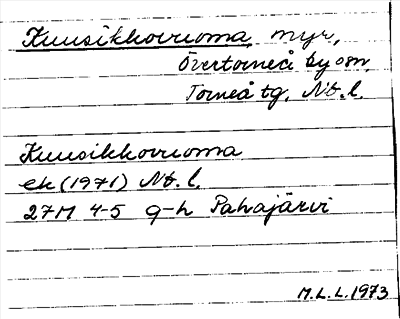 Kuusikkovuoma, myr,
Övertorneå by osn,
Torneå tg, Nb. l.
Kuusikkovuoma
ek (1971) Nb. l.
27M 4-5 g-h Pahajärvi
M.L.L. 1973